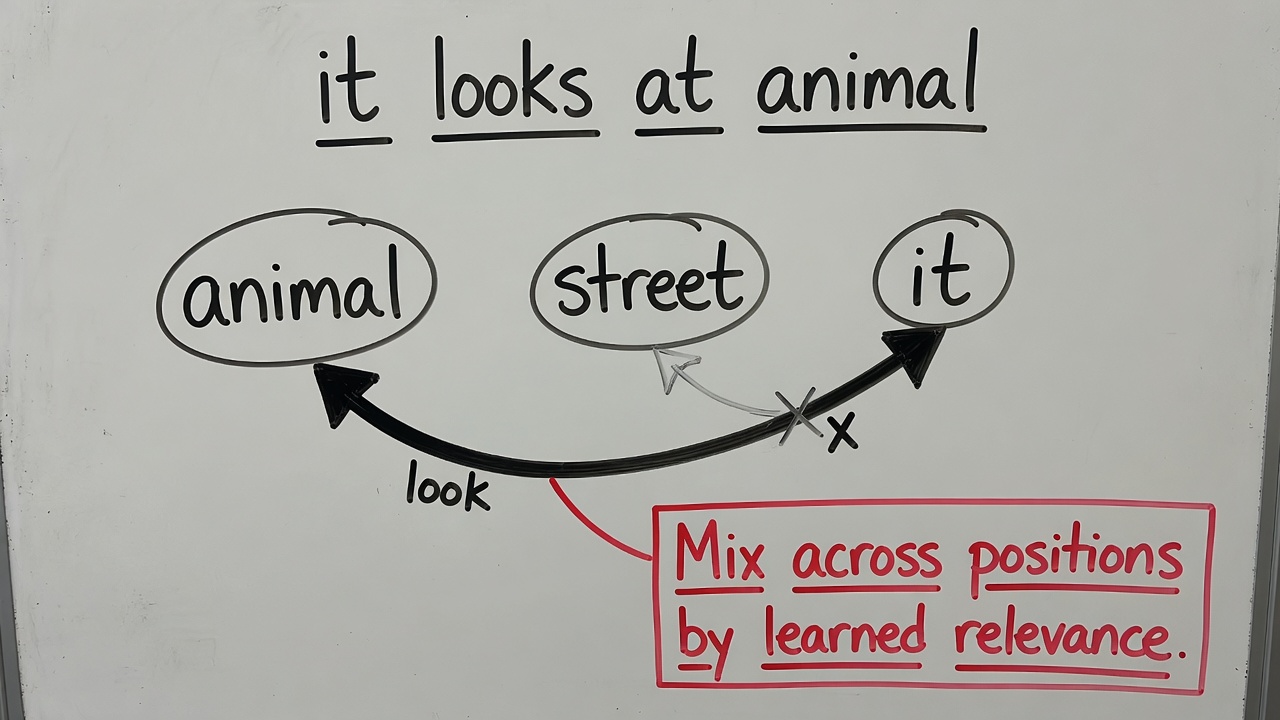 it looks at animal
animal street it
x
look
Mix across positions
by learned relevance.